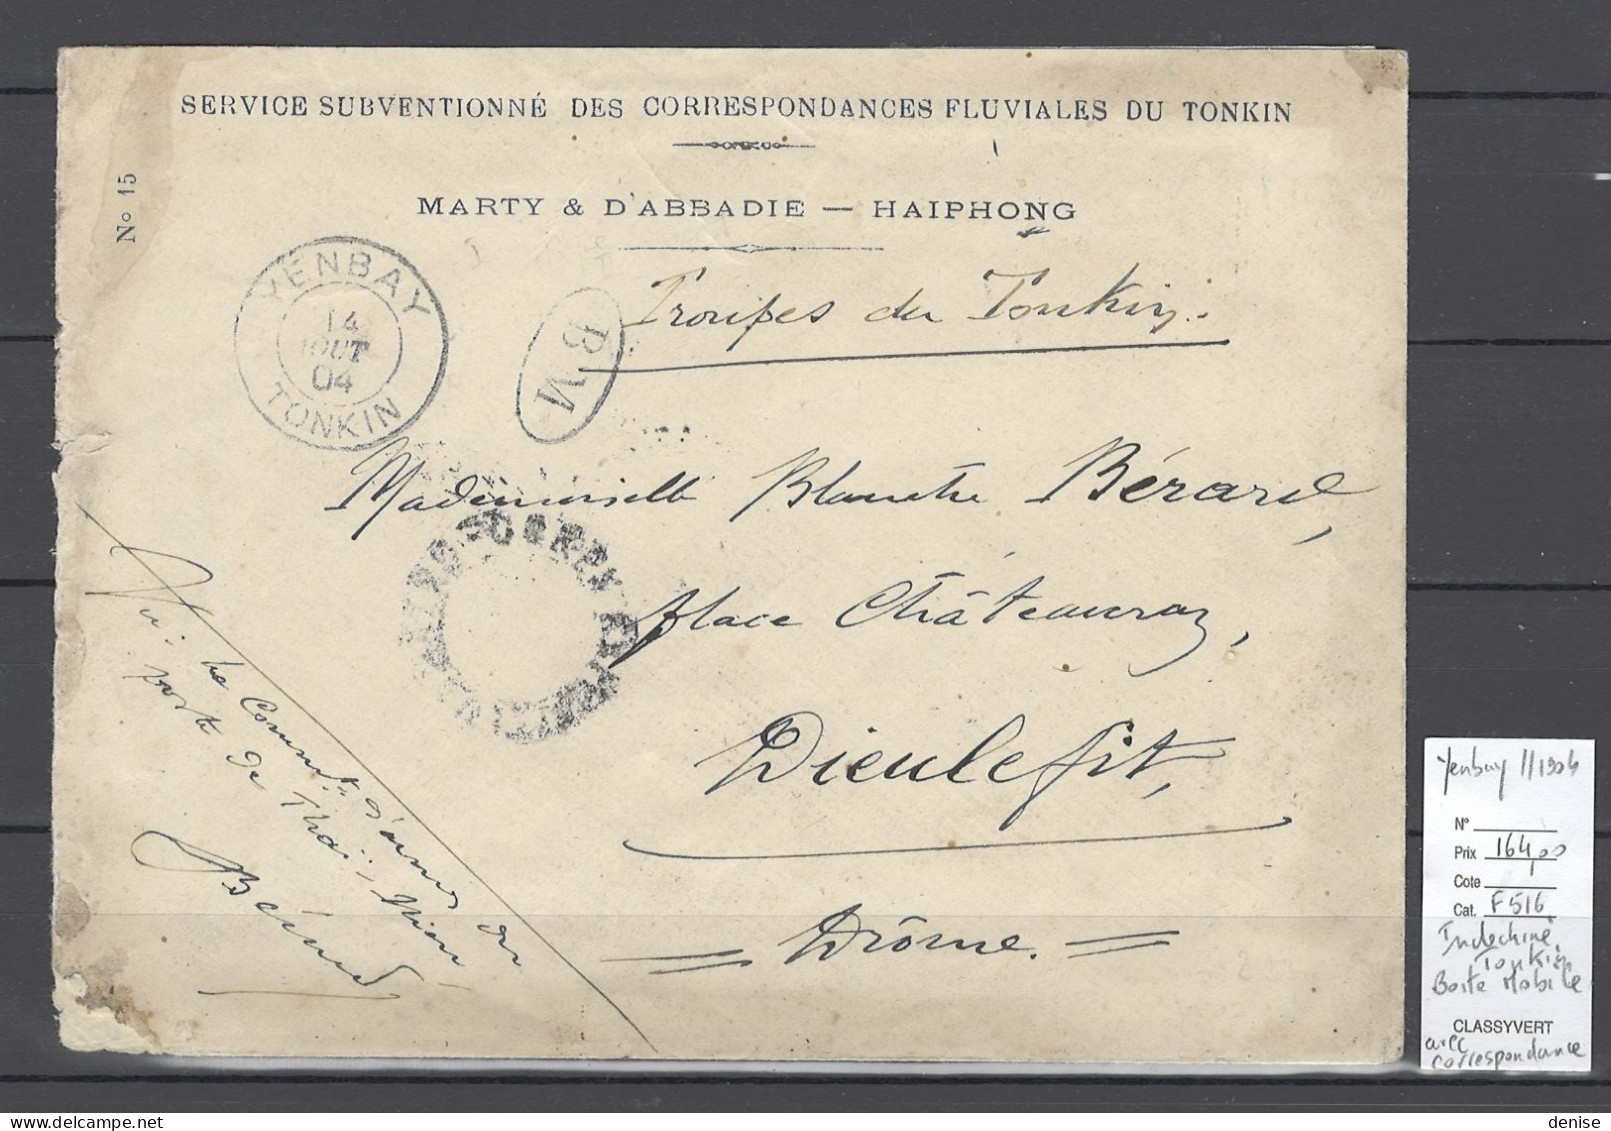 SERVICE SUBVENTIONNÉ DES CORRESPONDANCES FLUVIALES DU TONKIN
N° 15
MARTY & D'ABBADIE — HAIPHONG
YENBAY
14
AOUT
04
TONKIN
BM
Troupes du Tonkin.
Mademoiselle Blanche Bérard,
place Châteauras,
Dieulefit,
= Drôme. =
CORR. D'ARMÉES
Vu: Le Comm.dt d'armes du
poste de Thaï,
Bérard
Yenbay //1904
N°
Prix 164,00
Cote
Cat. F516
Indochine
Tonkin
Boite Mobile
CLASSYVERT
avec
correspondance
denise